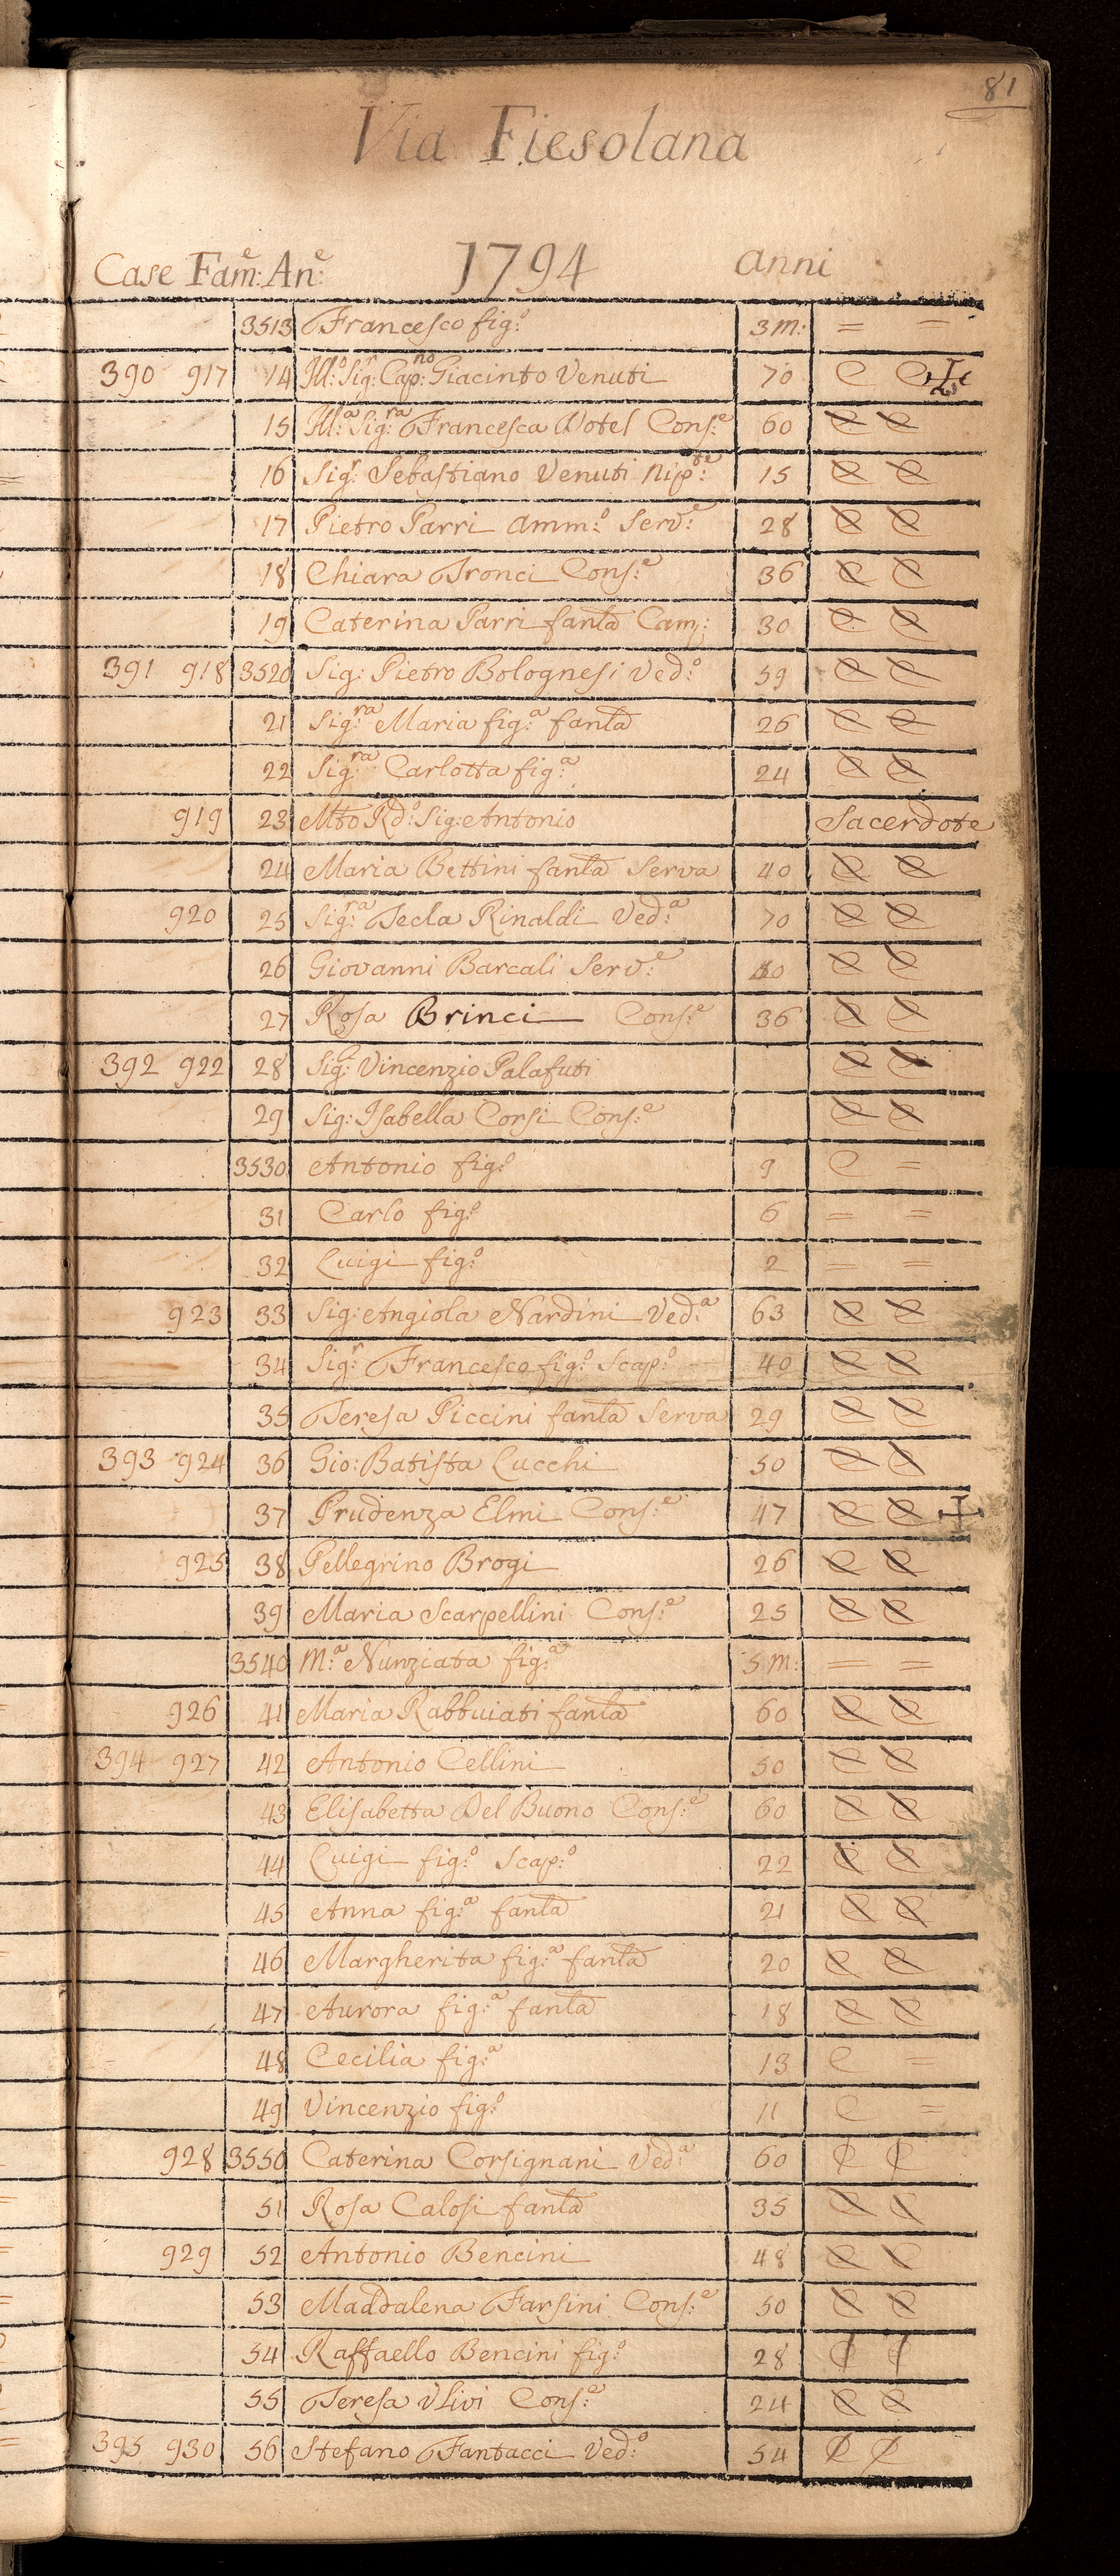 81
Via Fiesolana
Case Fam:e An:e 1794 anni
3513 Francesco fig:o 3 m: = =
390 917 14 Ill:o Sig:r Cap:no Giacinto Venuti 70 C C
15 Ill:a Sig:ra Francesca Dotel Cons:e 60 C C
16 Sig:r Sebastiano Venuti Nip:te 15 C C
17 Pietro Parri Amm:o Serv:e 28 C C
18 Chiara Tronci Cons:e 36 C C
19 Caterina Parri fanla Cam: 30 C C
391 918 3520 Sig: Pietro Bolognesi Ved:o 59 C C
21 Sig:ra Maria fig:a fanla 26 C C
22 Sig:ra Carlotta fig:a 24 C C
919 23 Mto Rd:o Sig: Antonio Sacerdote
24 Maria Bettini fanla Serva 40 C C
920 25 Sig:ra Tecla Rinaldi Ved:a 70 C C
26 Giovanni Barcali Serv:e 40 C C
27 Rosa Brinci Cons:e 36 C C
392 922 28 Sig:r Vincenzio Palafuti C C
29 Sig: Isabella Corsi Cons:e C C
3530 Antonio fig:o 9 C =
31 Carlo fig:o 6 = =
32 Luigi fig:o 2 = =
923 33 Sig: Angiola Nardini Ved:a 63 C C
34 Sig:r Francesco fig:o Scap:o 40 C C
35 Teresa Piccini fanla Serva 29 C C
393 924 36 Gio: Batista Lucchi 50 C C
37 Prudenza Elmi Cons:e 47 C C
925 38 Pellegrino Brogi 26 C C
39 Maria Scarpellini Cons:e 25 C C
3540 M:a Nunziata fig:a 5 m: = =
926 41 Maria Rabbuiati fanla 60 C C
394 927 42 Antonio Cellini 50 C C
43 Elisabetta Del Buono Cons:e 60 C C
44 Luigi fig:o Scap:o 22 C C
45 Anna fig:a fanla 21 C C
46 Margherita fig:a fanla 20 C C
47 Aurora fig:a fanla 18 C C
48 Cecilia fig:a 13 C =
49 Vincenzio fig:o 11 C =
928 3550 Caterina Corsignani Ved:a 60 C C
51 Rosa Calosi fanla 35 C C
929 52 Antonio Bencini 48 C C
53 Maddalena Farsini Cons:e 50 C C
54 Raffaello Bencini fig:o 28 C C
55 Teresa Ulivi Cons:e 24 C C
395 930 56 Stefano Fantacci Ved:o 54 C C